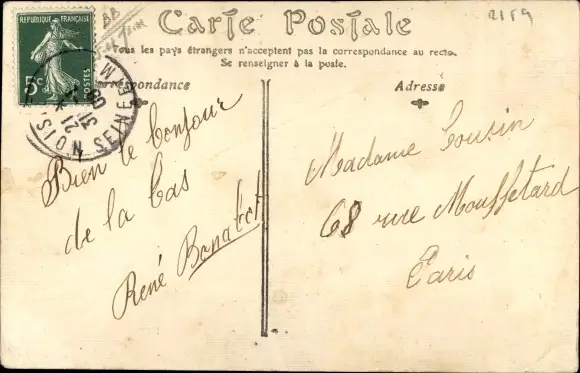 RÉPUBLIQUE FRANÇAISE
5c
POSTES
BB
2159
Carte Postale
Tous les pays étrangers n'acceptent pas la correspondance au recto.
Se renseigner à la poste.
Correspondance
Adresse
Bien le bonjour
de la bas
René Bonabot
Madame Cousin
68 rue Mouffetard
Paris
SEINE